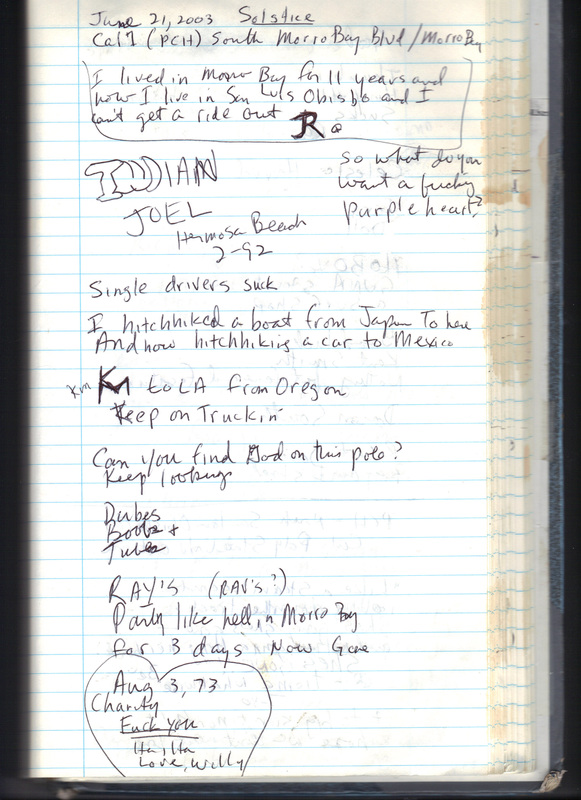 June 21, 2003 Solstice
Cal 1 (PCH) South Morro Bay Blvd / Morro Bay
I lived in Morro Bay for 11 years and
now I live in San Luis Obisbo and I
can't get a ride out R
INDIAN
JOEL
Hermosa Beach
2-92
so what do you
want a fucking
purple heart?
Single drivers suck
I hitchhiked a boat from Japan To here
And now hitchhiking a car to Mexico
KM KM to LA from Oregon
Keep on Truckin'
Can you find God on this pole?
Keep looking
Dubes
Boobs +
Tubes
RAY'S (RAV'S?)
Party like hell, in Morro Bay
for 3 days Now Gone
Aug 3, 73
Charity
Fuck you
Ha, Ha
Love, Willy